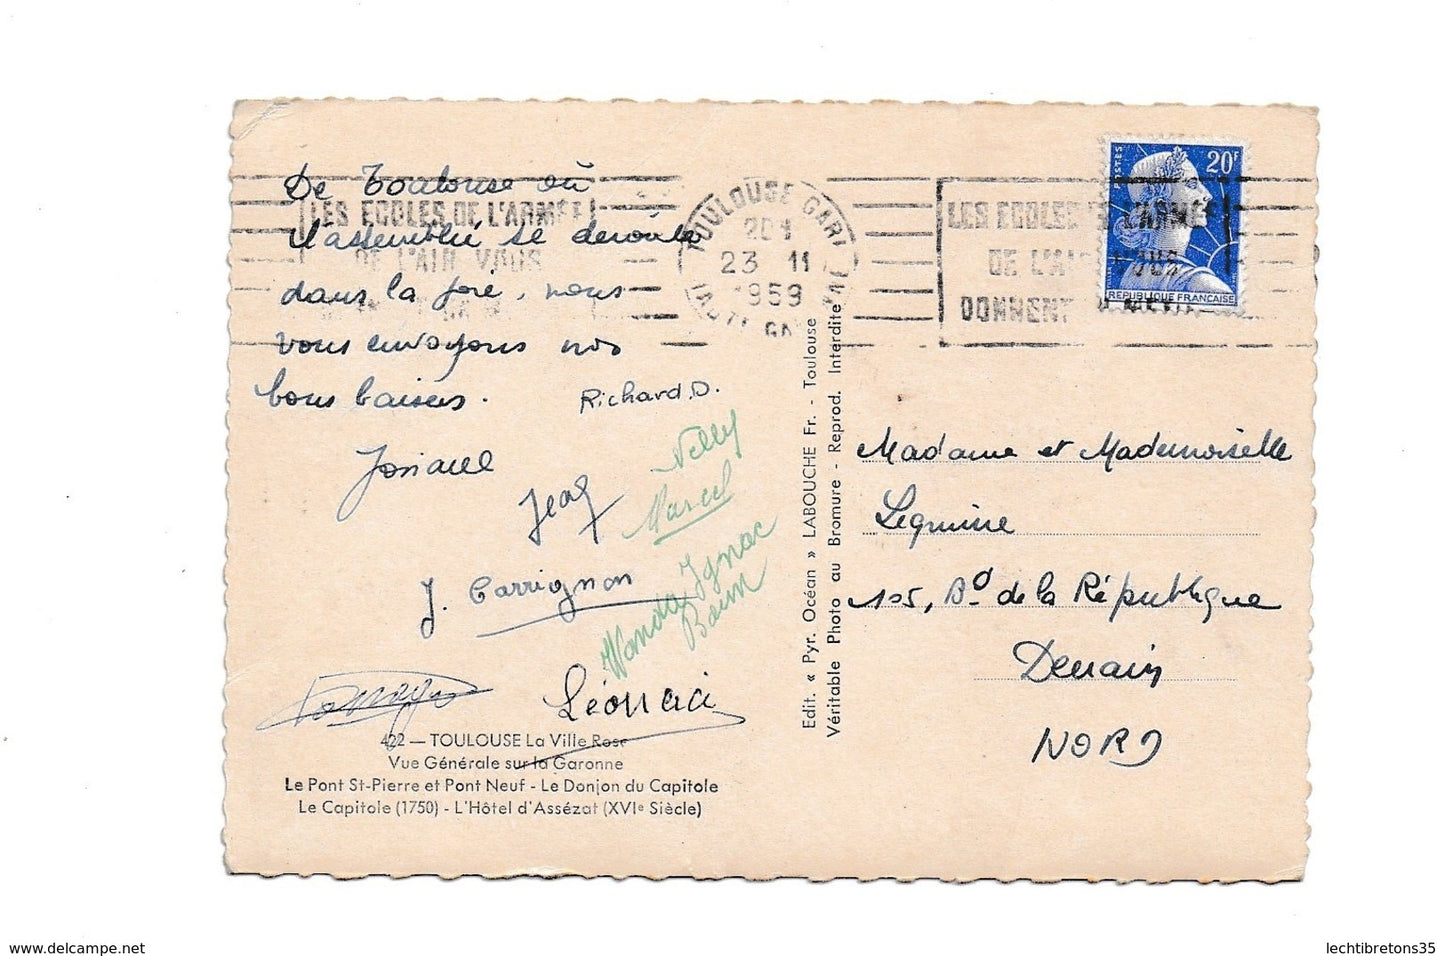 De Toulouse où
l'assemblée se déroule
dans la joie, nous
vous envoyons nos
bons baisers.
Richard.D.
Josiane
Jean
Nelly
Marcel
J. Carrignon
Wanda Ignac
Léon
422 — TOULOUSE La Ville Rose
Vue Générale sur la Garonne
Le Pont St-Pierre et Pont Neuf - Le Donjon du Capitole
Le Capitole (1750) - L'Hôtel d'Assézat (XVIe Siècle)
LES ECOLES DE L'ARMÉE
DE L'AIR VOUS
TOULOUSE GARE
23 11
1959
LES ECOLES DE L'ARMÉE
DE L'AIR VOUS
DONNENT
POSTES
20F
REPUBLIQUE FRANÇAISE
Edit. « Pyr. Océan » LABOUCHE Fr. - Toulouse
Véritable Photo au Bromure - Reprod. Interdite
Madame et Mademoiselle
Lequinne
105, Bd de la République
Denain
NORD
www.delcampe.net
lechtibretons35